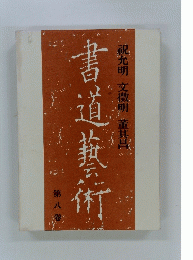 祝允明 文徴明 董其昌
書道藝術
第八巻